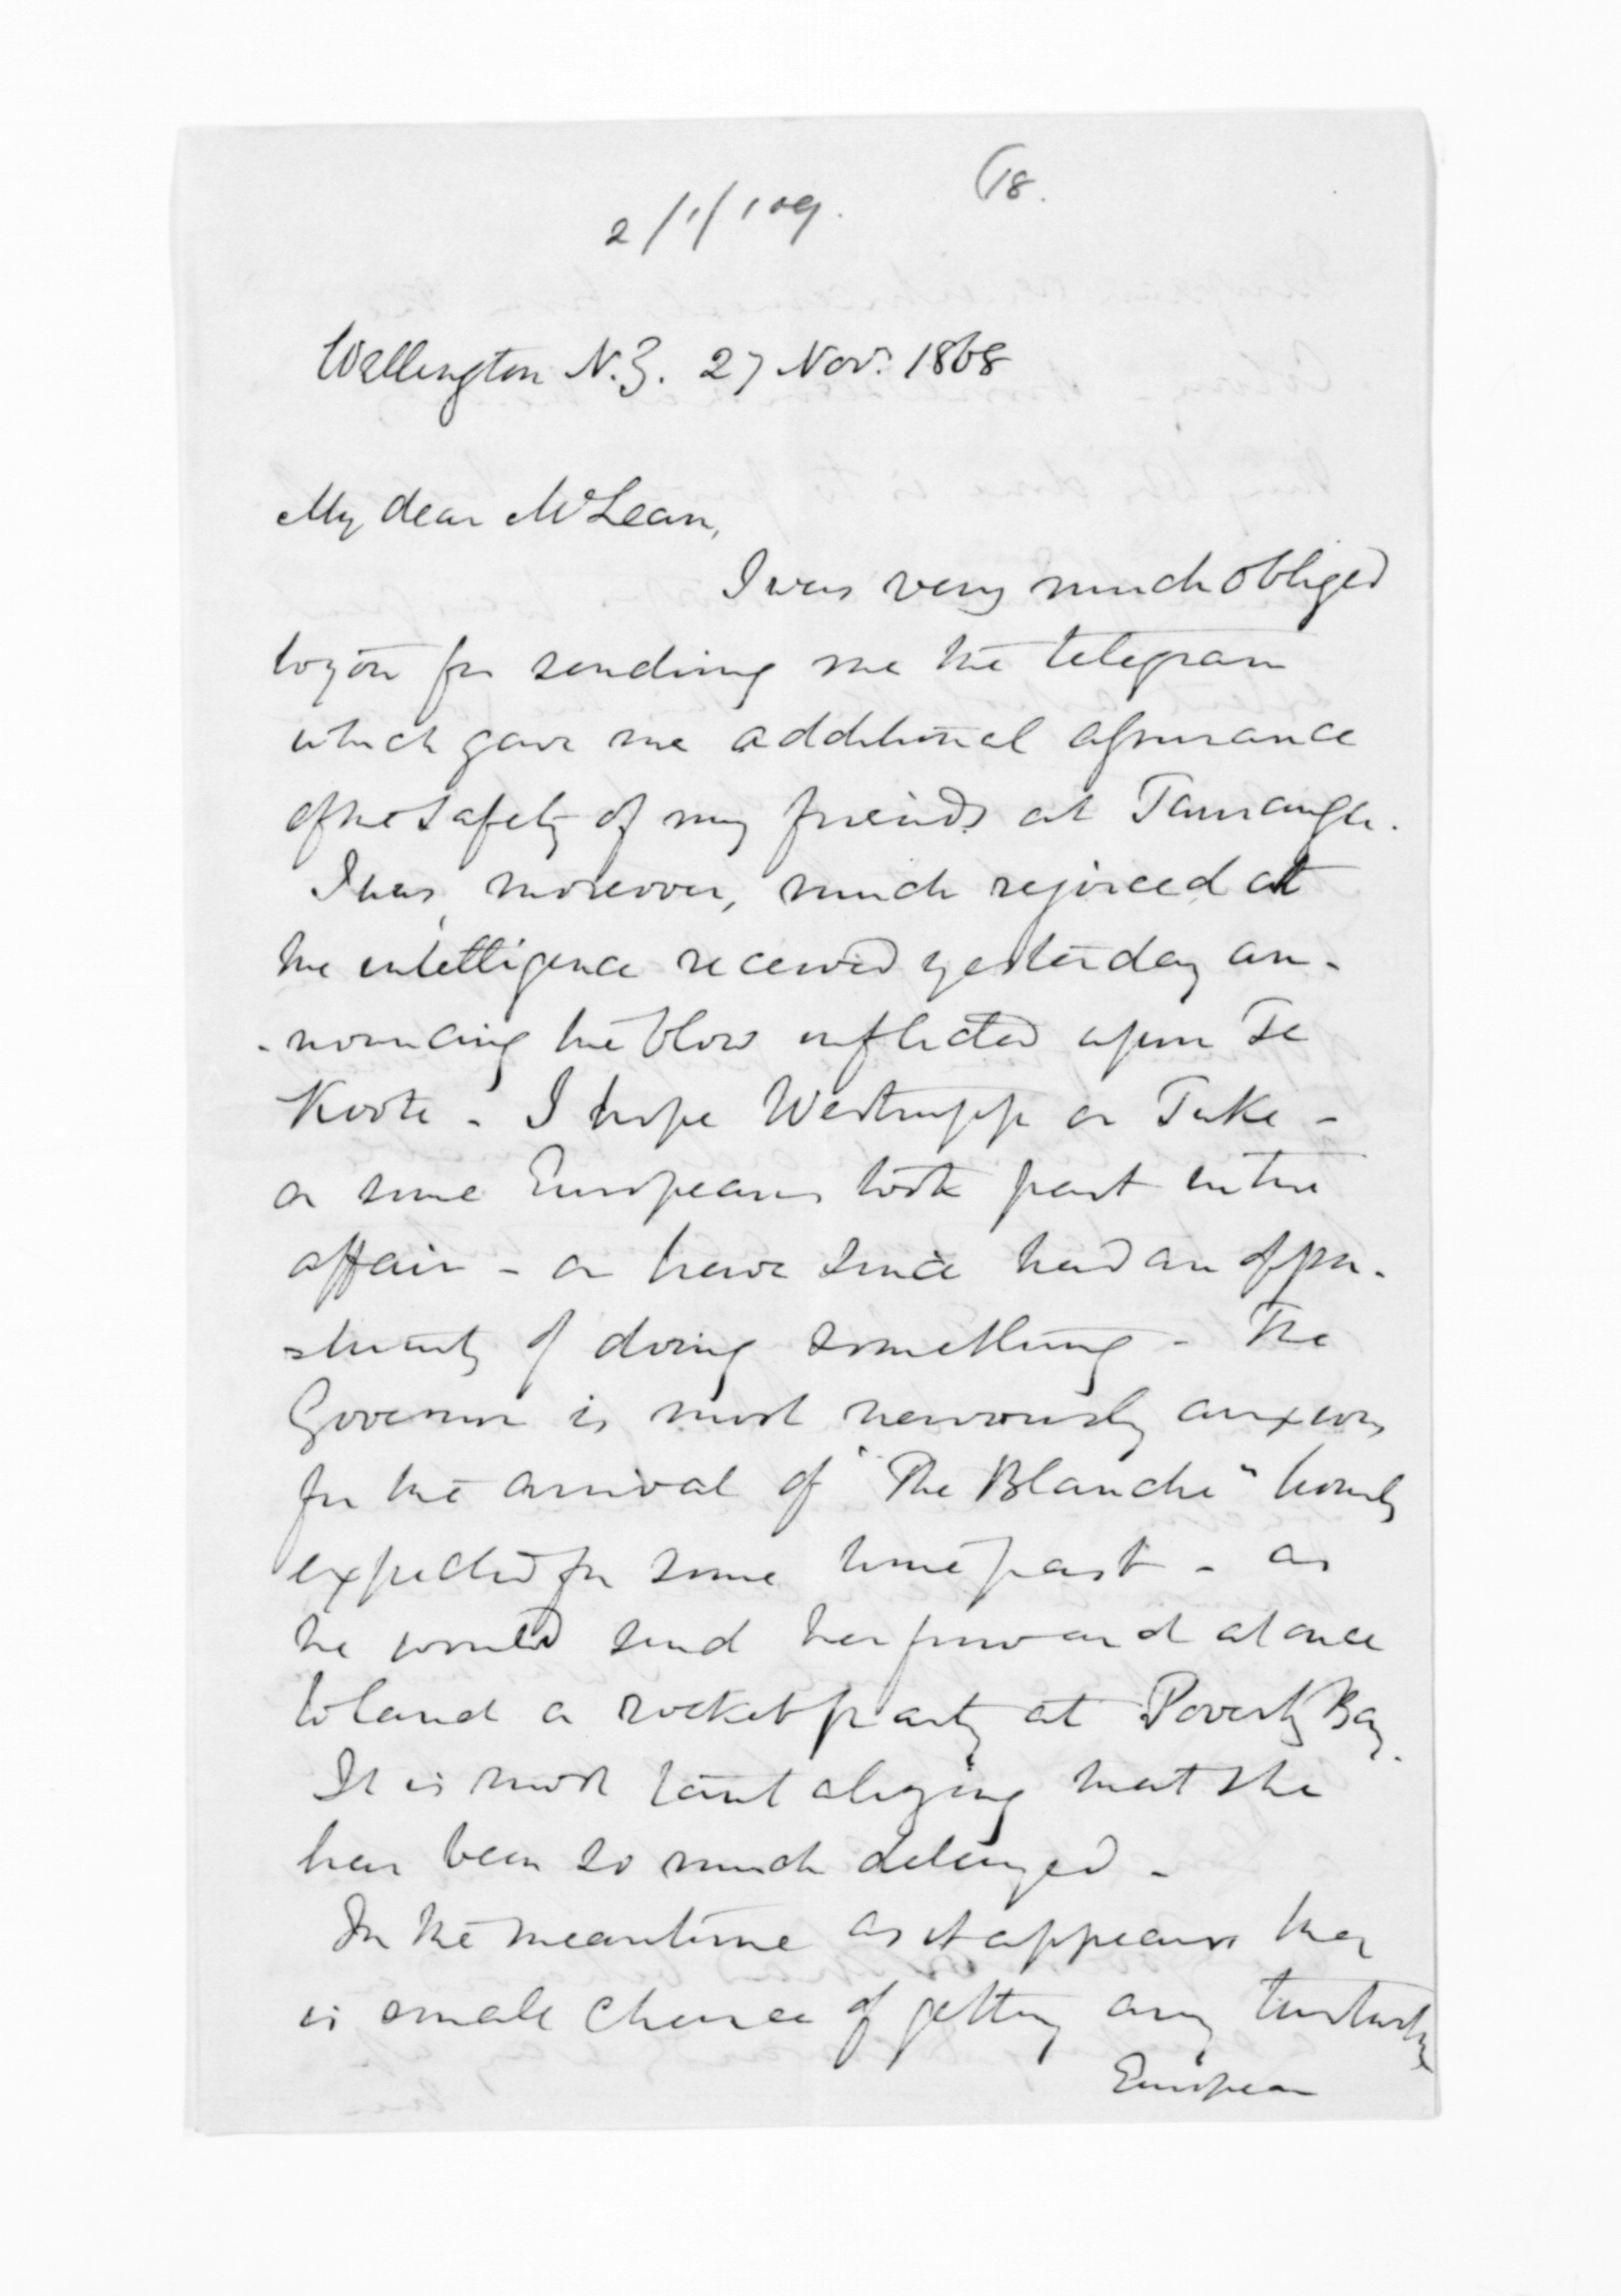 2/1/109.
(18.
Wellington N.Z. 27 Nov: 1868
My dear McLean,
I was very much obliged
to you for sending me the telegram
which gave me additional assurance
of the safety of my friends at Tauranga.
I was, moreover, much rejoiced at
the intelligence received yesterday an-
-nouncing the blow inflicted upon Te
Kooti - I hope Westrupp or Tuke -
or some Europeans took part in the
affair - or have since had an oppor-
-tunity of doing something - The
Governor is most nervously anxious
for the arrival of "The Blanche" hourly
expected for some time past - as
he would send her forward at once
to land a rocket party at Poverty Bay.
It is most tantalizing that she
has been so much delayed -
In the meantime as it appears there
is small chance of getting any trustworthy
European